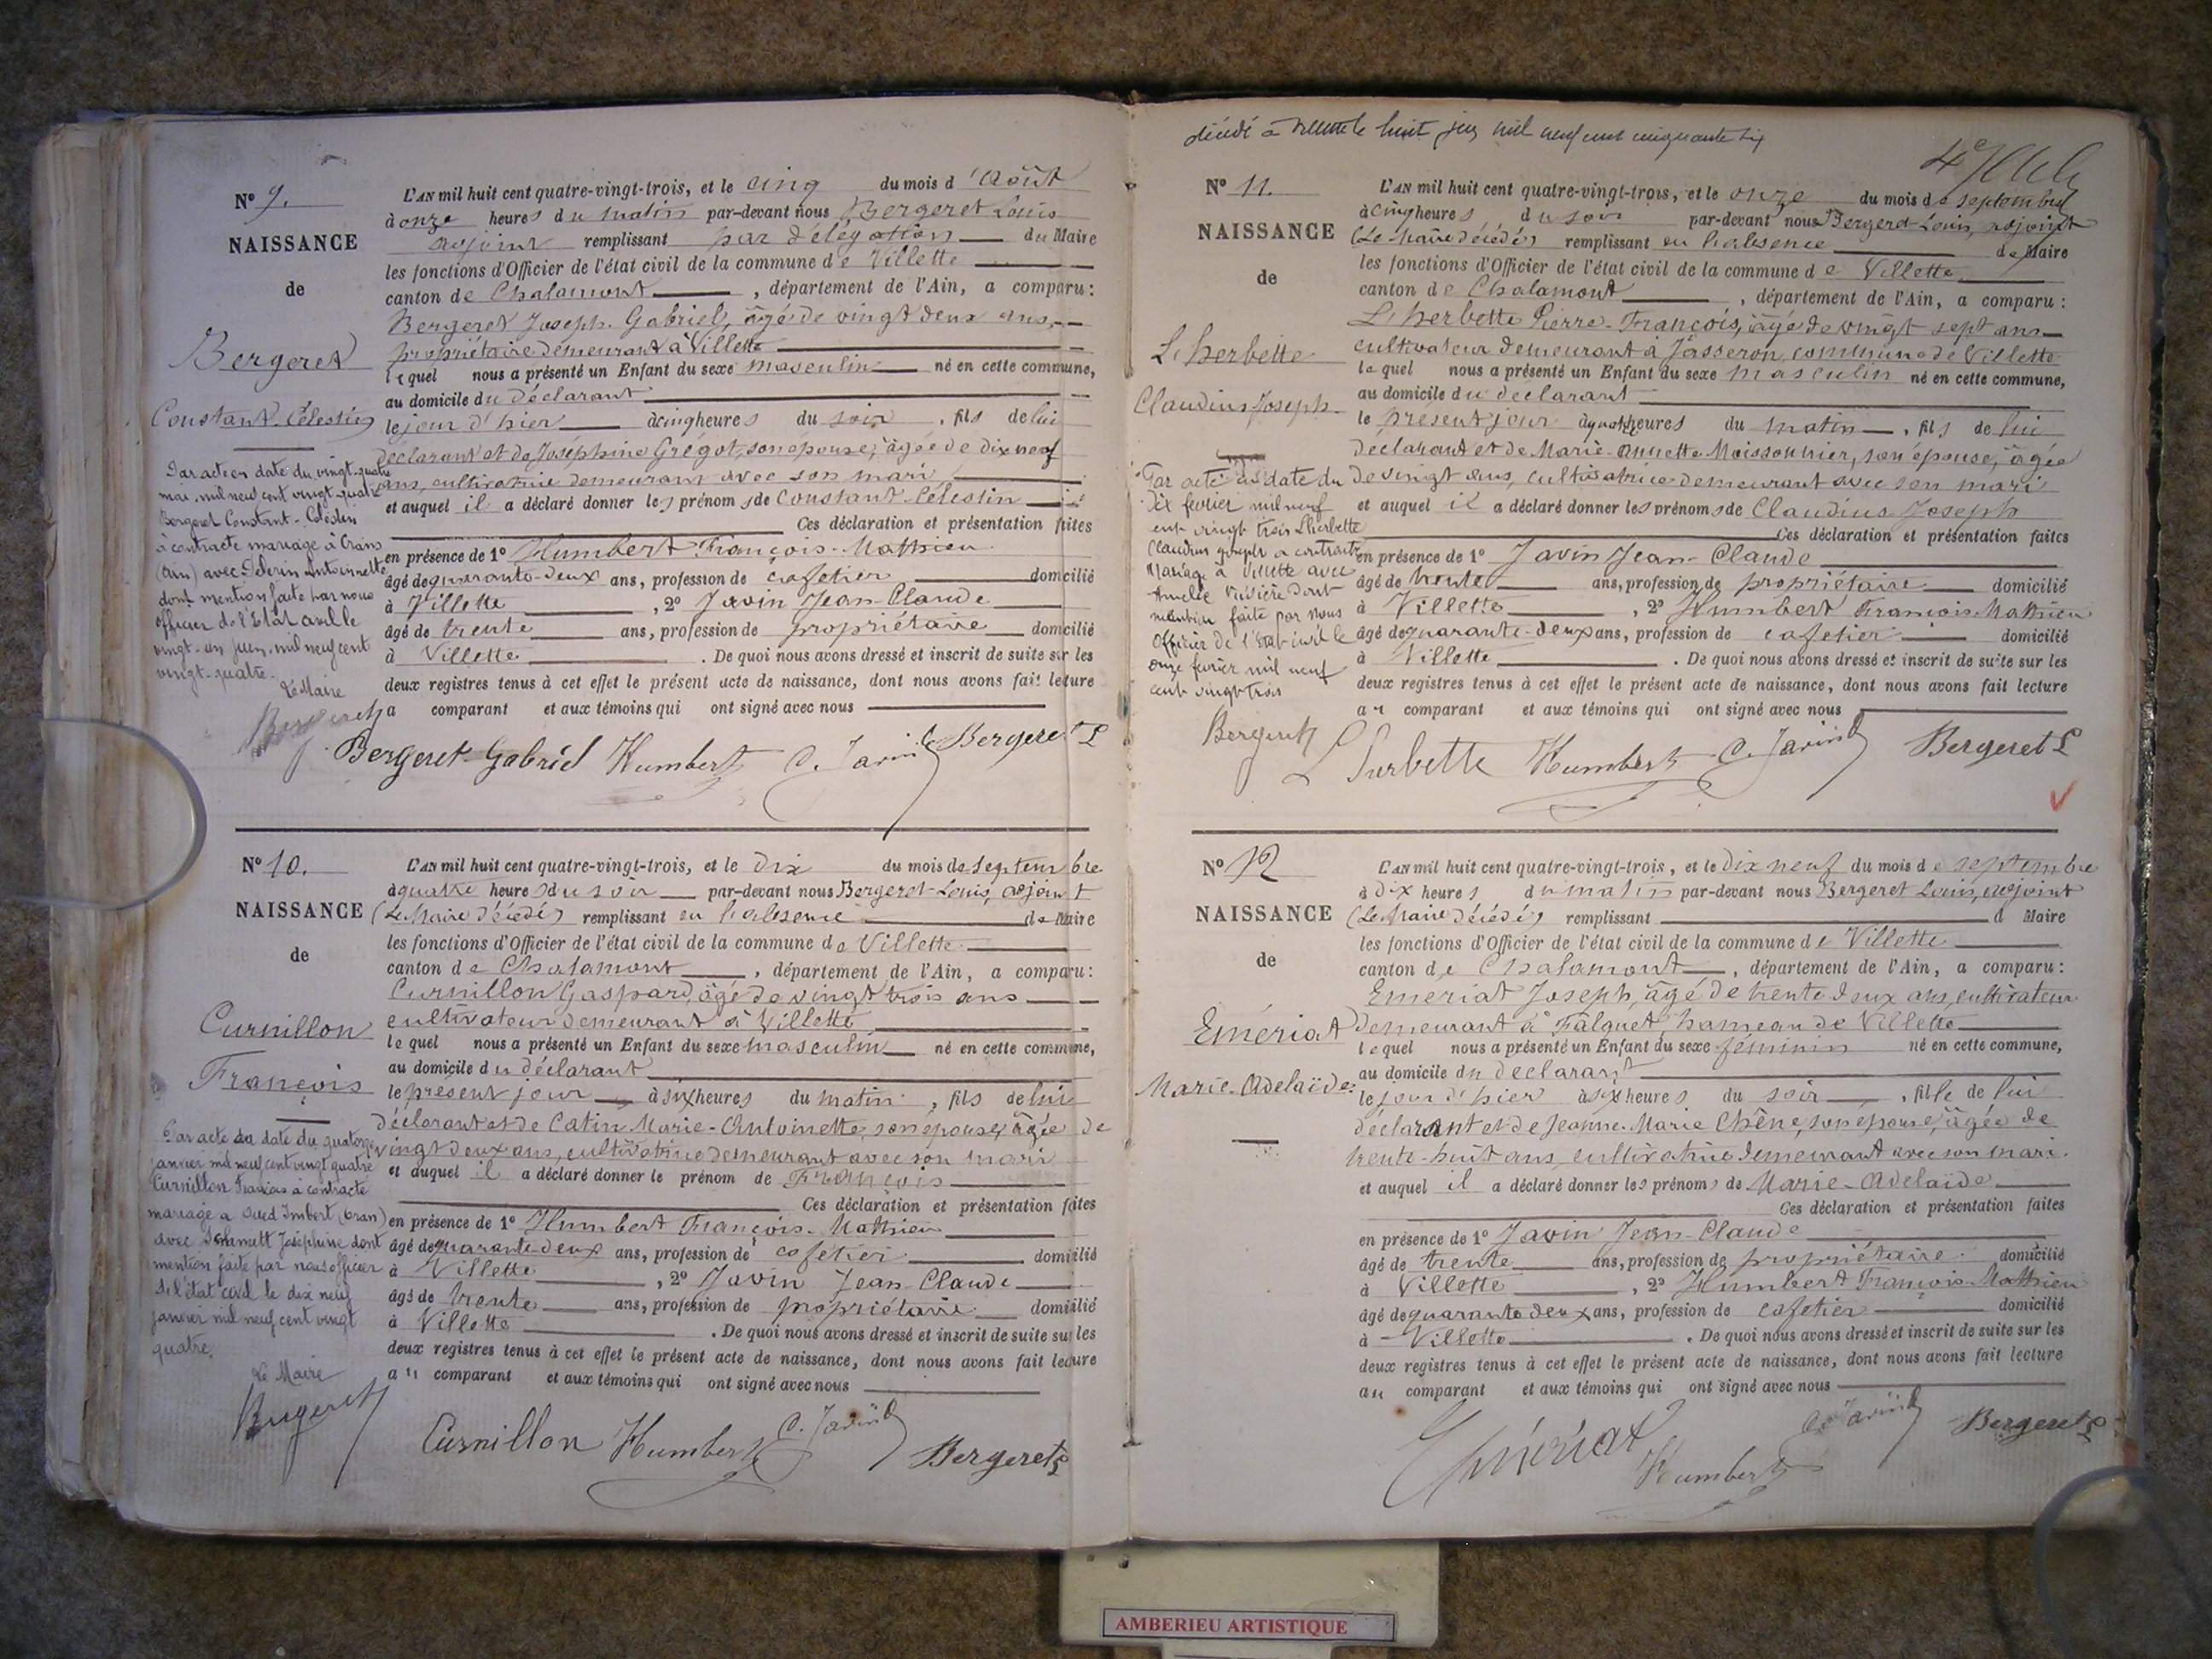 N° 9.
NAISSANCE
de
Bergeret
Constant-Célestin
Par acte en date du vingt-quatre
mai mil neuf cent vingt-quatre
Bergeret Constant-Célestin
à contracté mariage à Crans
(Ain) avec Antoinette
dont mention faite par nous
officier de l'Etat civil le
vingt-un juin mil neuf cent
vingt-quatre.
Le Maire
Bergeret
L'AN mil huit cent quatre-vingt-trois, et le cinq du mois d'Août
à onze heures du matin par-devant nous Bergeret Louis
adjoint remplissant par délégation du Maire
les fonctions d'Officier de l'état civil de la commune de Villette
canton de Chalamont, département de l'Ain, a comparu:
Bergeret Joseph-Gabriel, âgé de vingt deux ans,
propriétaire demeurant à Villette
lequel nous a présenté un Enfant du sexe masculin né en cette commune,
au domicile du déclarant
le jour d'hier à cinq heures du soir, fils de lui
déclarant et de Joséphine Grégot, son épouse, âgée de dix neuf
ans, cultivatrice demeurant avec son mari
et auquel il a déclaré donner les prénoms de Constant-Célestin
Ces déclaration et présentation faites
en présence de 1° Humbert François-Mathieu
âgé de quarante-deux ans, profession de cafetier domicilié
à Villette, 2° Javin Jean-Claude
âgé de trente ans, profession de propriétaire domicilié
à Villette. De quoi nous avons dressé et inscrit de suite sur les
deux registres tenus à cet effet le présent acte de naissance, dont nous avons fait lecture
a comparant et aux témoins qui ont signé avec nous
Bergeret Gabriel Humbert C. Javin Bergeret L
N° 10.
NAISSANCE
de
Curnillon
François
Par acte en date du quatorze
janvier mil neuf cent vingt quatre
Curnillon François à contracté
mariage a Oued Imbert (Oran)
avec Joséphine dont
mention faite par nous officier
de l'état civil le dix neuf
janvier mil neuf cent vingt
quatre.
Le Maire
Bergeret
L'AN mil huit cent quatre-vingt-trois, et le dix du mois de septembre
à quatre heures du soir par-devant nous Bergeret Louis, adjoint
(Le Maire décédé) remplissant en l'absence de Maire
les fonctions d'Officier de l'état civil de la commune de Villette
canton de Chalamont, département de l'Ain, a comparu:
Curnillon Gaspard, âgé de vingt trois ans
cultivateur demeurant à Villette
lequel nous a présenté un Enfant du sexe masculin né en cette commune,
au domicile du déclarant
le présent jour à six heures du matin, fils de lui
déclarant et de Catin Marie-Antoinette, son épouse, âgée de
vingt deux ans, cultivatrice demeurant avec son mari
et auquel il a déclaré donner le prénom de François
Ces déclaration et présentation faites
en présence de 1° Humbert François-Mathieu
âgé de quarante-deux ans, profession de cafetier domicilié
à Villette, 2° Javin Jean-Claude
âgé de trente ans, profession de propriétaire domicilié
à Villette. De quoi nous avons dressé et inscrit de suite sur les
deux registres tenus à cet effet le présent acte de naissance, dont nous avons fait lecture
au comparant et aux témoins qui ont signé avec nous
Curnillon Humbert C. Javin Bergeret L
décédé à Villette le huit juin mil neuf cent cinquante six
N° 11.
NAISSANCE
de
L'herbette
Claudius Joseph.
Par acte en date du
dix février mil neuf
cent vingt trois Lherbette
Claudius Joseph a contracté
Mariage à Villette avec
dont
mention faite par nous
Officier de l'Etat civil le
onze février mil neuf
cent vingt trois
Bergeret
L'AN mil huit cent quatre-vingt-trois, et le onze du mois de septembre
à cinq heures du soir par-devant nous Bergeret Louis, adjoint
(Le Maire décédé) remplissant en l'absence de Maire
les fonctions d'Officier de l'état civil de la commune de Villette
canton de Chalamont, département de l'Ain, a comparu:
L'herbette Pierre-François, âgé de vingt sept ans
cultivateur demeurant à Jasseron, commune de Villette
lequel nous a présenté un Enfant du sexe masculin né en cette commune,
au domicile du déclarant
le présent jour à quatre heures du matin, fils de lui
déclarant et de Marie-Annette Moissonnier, son épouse, âgée
de vingt ans, cultivatrice demeurant avec son mari
et auquel il a déclaré donner les prénoms de Claudius Joseph
Ces déclaration et présentation faites
en présence de 1° Javin Jean-Claude
âgé de trente ans, profession de propriétaire domicilié
à Villette, 2° Humbert François-Mathieu
âgé de quarante-deux ans, profession de cafetier domicilié
à Villette. De quoi nous avons dressé et inscrit de suite sur les
deux registres tenus à cet effet le présent acte de naissance, dont nous avons fait lecture
au comparant et aux témoins qui ont signé avec nous
Humbert C. Javin Bergeret L
N° 12
NAISSANCE
de
Emériat
Marie-Adelaïde
L'AN mil huit cent quatre-vingt-trois, et le dix neuf du mois de septembre
à dix heures du matin par-devant nous Bergeret Louis, adjoint
(Le Maire décédé) remplissant d Maire
les fonctions d'Officier de l'état civil de la commune de Villette
canton de Chalamont, département de l'Ain, a comparu:
Emériat Joseph, âgé de trente deux ans, cultivateur
demeurant à Falguet, hameau de Villette
lequel nous a présenté un Enfant du sexe féminin né en cette commune,
au domicile du déclarant
le jour d'hier à six heures du soir, fille de lui
déclarant et de Jeanne-Marie Chêne, son épouse, âgée de
trente-huit ans, cultivatrice demeurant avec son mari.
et auquel il a déclaré donner les prénoms de Marie-Adelaïde
Ces déclaration et présentation faites
en présence de 1° Javin Jean-Claude
âgé de trente ans, profession de propriétaire domicilié
à Villette, 2° Humbert François-Mathieu
âgé de quarante deux ans, profession de cafetier domicilié
à Villette. De quoi nous avons dressé et inscrit de suite sur les
deux registres tenus à cet effet le présent acte de naissance, dont nous avons fait lecture
au comparant et aux témoins qui ont signé avec nous
Emériat Humbert C. Javin Bergeret L
AMBERIEU ARTISTIQUE